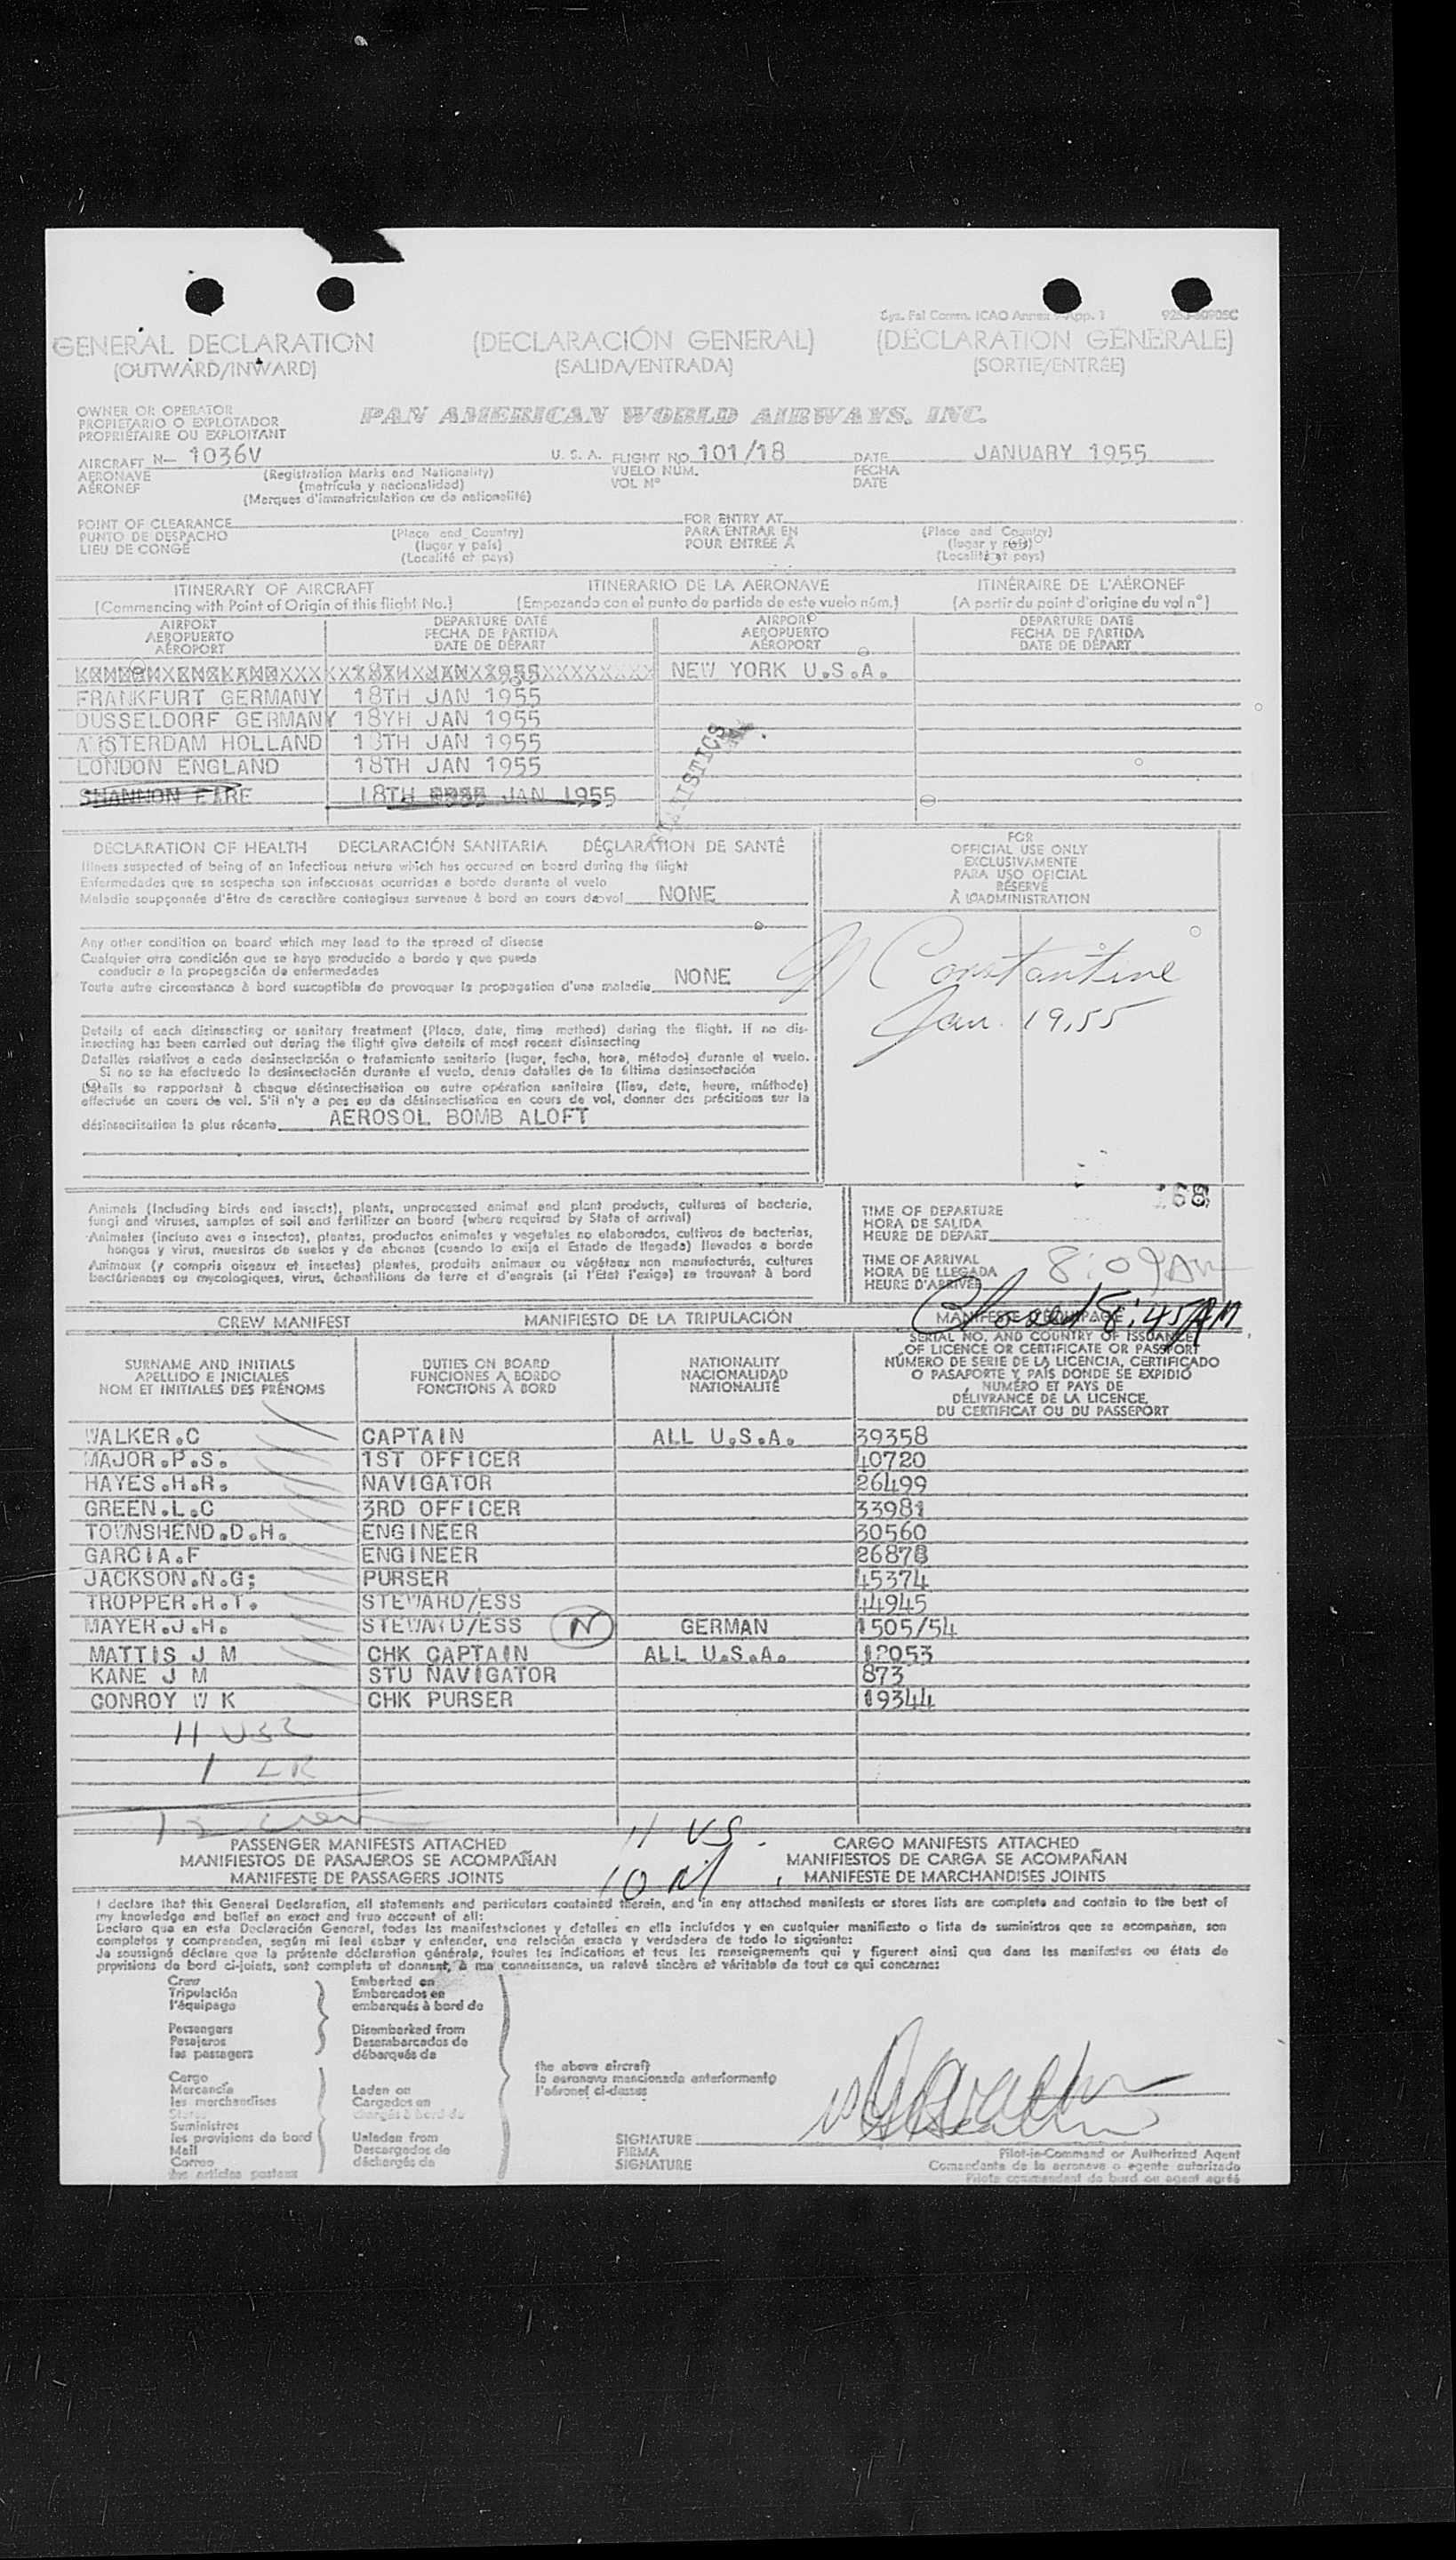 Sys. Fal Comm. ICAO Annex 9 App. 1
GENERAL DECLARATION (DECLARACIÓN GENERAL) (DÉCLARATION GÉNÉRALE)
(OUTWARD/INWARD) (SALIDA/ENTRADA) (SORTIE/ENTRÉE)
OWNER OR OPERATOR
PROPIETARIO O EXPLOTADOR
PROPRIÉTAIRE OU EXPLOITANT
PAN AMERICAN WORLD AIRWAYS, INC.
AIRCRAFT N— 1036V U. S. A. FLIGHT NO. 101/18 DATE JANUARY 1955
AERONAVE (Registration Marks and Nationality) VUELO NUM. FECHA
AÉRONEF (matrícula y nacionalidad) VOL Nº DATE
(Marques d'immatriculation ou de nationalité)
POINT OF CLEARANCE FOR ENTRY AT
PUNTO DE DESPACHO (Place and Country) PARA ENTRAR EN (Place and Country)
LIEU DE CONGÉ (lugar y país) POUR ENTRÉE À (lugar y país)
(Localité et pays) (Localité et pays)
ITINERARY OF AIRCRAFT ITINERARIO DE LA AERONAVE ITINÉRAIRE DE L'AÉRONEF
(Commencing with Point of Origin of this flight No.) (Empezando con el punto de partida de este vuelo núm.) (A partir du point d'origine du vol nº)
AIRPORT DEPARTURE DATE AIRPORT DEPARTURE DATE
AEROPUERTO FECHA DE PARTIDA AEROPUERTO FECHA DE PARTIDA
AÉROPORT DATE DE DÉPART AÉROPORT DATE DE DÉPART
NEW YORK U.S.A.
FRANKFURT GERMANY 18TH JAN 1955
DUSSELDORF GERMANY 18YH JAN 1955
AMSTERDAM HOLLAND 18TH JAN 1955
LONDON ENGLAND 18TH JAN 1955
SHANNON EIRE 18TH JAN 1955
STATISTICS
DECLARATION OF HEALTH DECLARACIÓN SANITARIA DÉCLARATION DE SANTÉ
Illness suspected of being of an infectious nature which has occured on board during the flight
Enfermedades que se sospecha son infecciosas ocurridas a bordo durante el vuelo
Maladie soupçonnée d'être de caractère contagieux survenue à bord en cours de vol NONE
Any other condition on board which may lead to the spread of disease
Cualquier otra condición que se haya producido a bordo y que pueda
conducir a la propagación de enfermedades
Toute autre circonstance à bord susceptible de provoquer la propagation d'une maladie NONE
Details of each disinsecting or sanitary treatment (Place, date, time method) during the flight. If no dis-
insecting has been carried out during the flight give details of most recent disinsecting
Detalles relativos a cada desinsectación o tratamiento sanitario (lugar, fecha, hora, método) durante el vuelo.
Si no se ha efectuado la desinsectación durante el vuelo, dense detalles de la última desinsectación
Détails se rapportant à chaque désinsectisation ou autre opération sanitaire (lieu, date, heure, méthode)
effectuée en cours de vol. S'il n'y a pas eu de désinsectisation en cours de vol, donner des précisions sur la
désinsectisation la plus récente AEROSOL BOMB ALOFT
FOR
OFFICIAL USE ONLY
EXCLUSIVAMENTE
PARA USO OFICIAL
RÉSERVÉ
À L'ADMINISTRATION
Constantine
Jan. 19, 55
Animals (Including birds and insects), plants, unprocessed animal and plant products, cultures of bacteria,
fungi and viruses, samples of soil and fertilizer on board (where required by State of arrival)
Animales (incluso aves e insectos), plantas, productos animales y vegetales no elaborados, cultivos de bacterias,
hongos y virus, muestras de suelos y de abonos (cuando lo exija el Estado de llegada) llevados a bordo
Animaux (y compris oiseaux et insectes) plantes, produits animaux ou végétaux non manufacturés, cultures
bactériennes ou mycologiques, virus, échantillons de terre et d'engrais (si l'Etat l'exige) se trouvant à bord
168
TIME OF DEPARTURE
HORA DE SALIDA
HEURE DE DÉPART
TIME OF ARRIVAL
HORA DE LLEGADA 8:09 AM
HEURE D'ARRIVÉE
Closed 8:45 AM
CREW MANIFEST MANIFIESTO DE LA TRIPULACIÓN MANIFESTE D'ÉQUIPAGE
SURNAME AND INITIALS
APELLIDO E INICIALES
NOM ET INITIALES DES PRÉNOMS
DUTIES ON BOARD
FUNCIONES A BORDO
FONCTIONS À BORD
NATIONALITY
NACIONALIDAD
NATIONALITÉ
SERIAL NO. AND COUNTRY OF ISSUANCE
OF LICENCE OR CERTIFICATE OR PASSPORT
NÚMERO DE SERIE DE LA LICENCIA, CERTIFICADO
O PASAPORTE Y PAÍS DONDE SE EXPIDIÓ
NUMÉRO ET PAYS DE
DÉLIVRANCE DE LA LICENCE,
DU CERTIFICAT OU DU PASSEPORT
WALKER.C CAPTAIN ALL U.S.A. 39358
MAJOR.P.S. 1ST OFFICER 40720
HAYES.H.R. NAVIGATOR 26499
GREEN.L.C 3RD OFFICER 33981
TOWNSHEND.D.H. ENGINEER 30560
GARCIA.F ENGINEER 26878
JACKSON.N.G; PURSER 45374
TROPPER.R.T. STEWARD/ESS 44945
MAYER.J.H. STEWARD/ESS N GERMAN 1505/54
MATTIS J M CHK CAPTAIN ALL U.S.A. 12053
KANE J M STU NAVIGATOR 873
CONROY W K CHK PURSER 19344
11 USC
1
12 Crew
11 US.
PASSENGER MANIFESTS ATTACHED CARGO MANIFESTS ATTACHED
MANIFIESTOS DE PASAJEROS SE ACOMPAÑAN MANIFIESTOS DE CARGA SE ACOMPAÑAN
MANIFESTE DE PASSAGERS JOINTS MANIFESTE DE MARCHANDISES JOINTS
I declare that this General Declaration, all statements and particulars contained therein, and in any attached manifests or stores lists are complete and contain to the best of
my knowledge and belief an exact and true account of all:
Declaro que en esta Declaración General, todas las manifestaciones y detalles en ella incluídos y en cualquier manifiesto o lista de suministros que se acompañan, son
completos y comprenden, según mi leal saber y entender, una relación exacta y verdadera de todo lo siguiente:
Je soussigné déclare que la présente déclaration générale, toutes les indications et tous les renseignements qui y figurent ainsi que dans les manifestes ou états de
provisions de bord ci-joints, sont complets et donnent, à ma connaissance, un relevé sincère et véritable de tout ce qui concerne:
Crew Embarked on
Tripulación Embarcados en
l'équipage embarqués à bord de
Passengers Disembarked from
Pasajeros Desembarcados de
les passagers débarqués de
the above aircraft
la aeronave mencionada anteriormente
l'aéronef ci-dessus
Cargo
Mercancía Laden on
les marchandises Cargados en
Stores chargés à bord de
Suministros
les provisions de bord Unladen from
Mail Descargados de
Correo déchargés de
les articles postaux
SIGNATURE
FIRMA
SIGNATURE
Pilot-in-Command or Authorized Agent
Comandante de la aeronave o agente autorizado
Pilote commandant de bord ou agent agréé